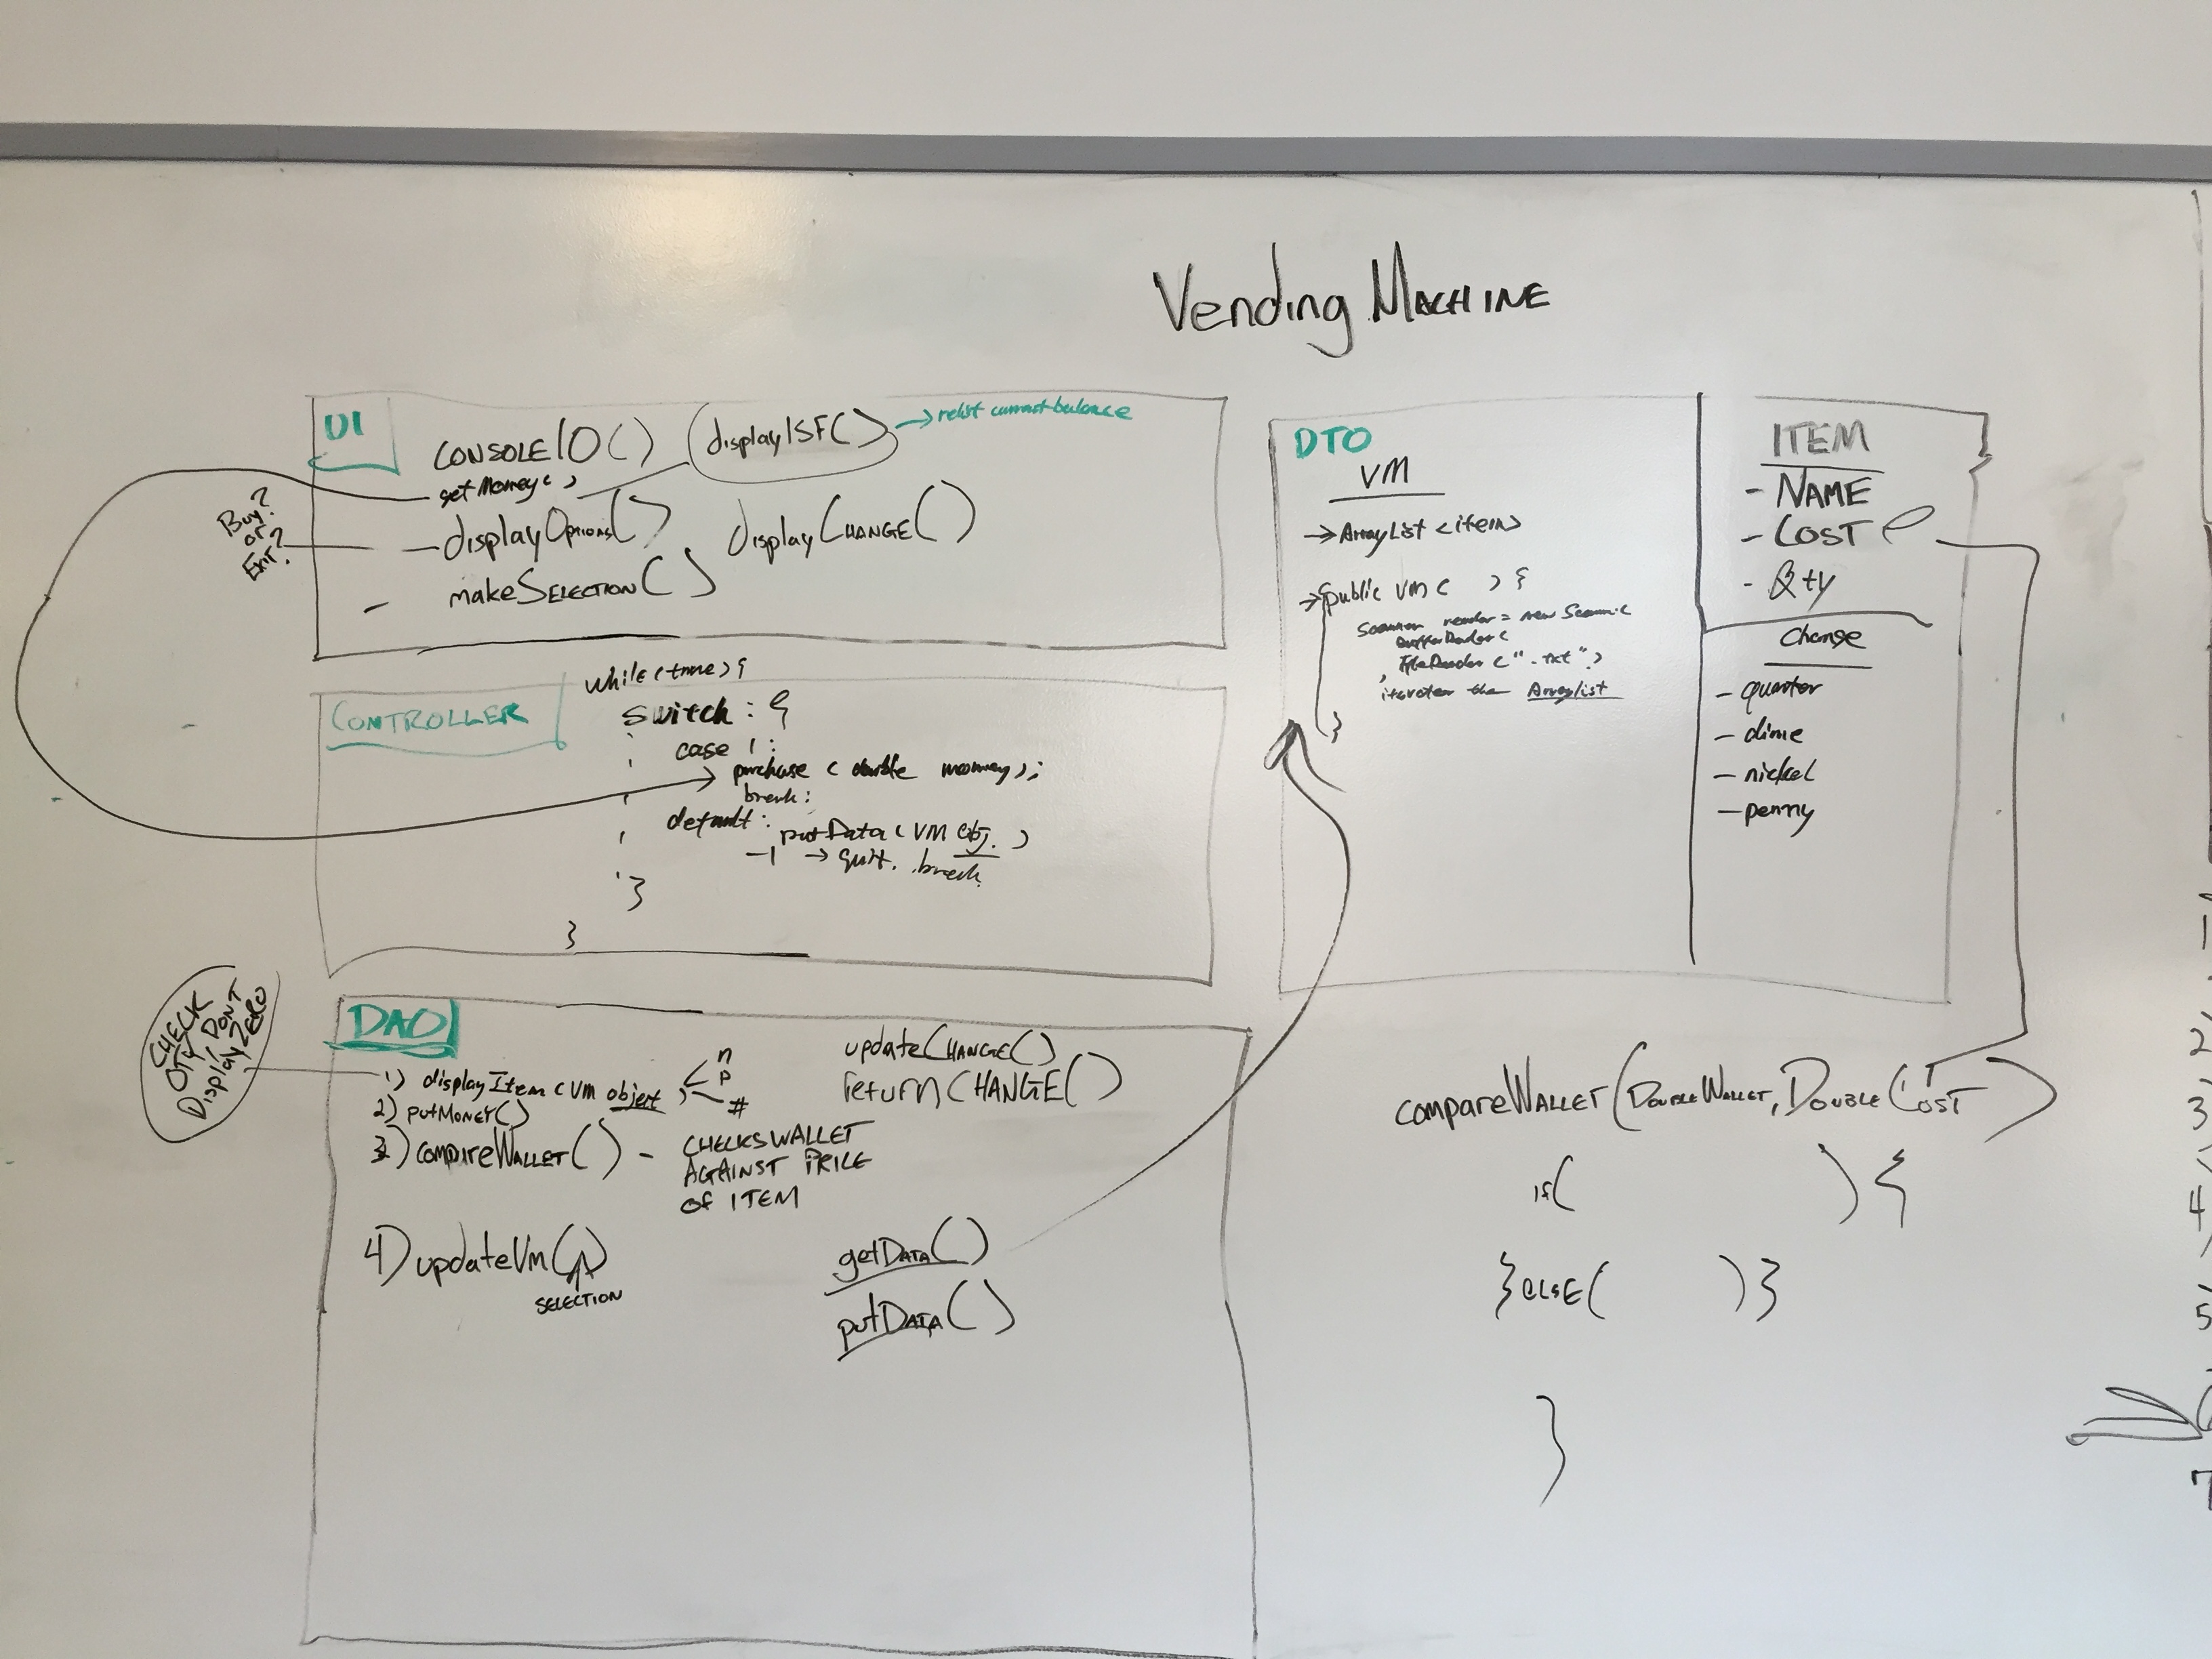 Vending MACHINE
UI
CONSOLE IO ( )
displayISF( )
→ relist current balance
getMoney( )
Buy?
or
Exit?
- displayOptions( )
displayCHANGE( )
- makeSELECTION( )
CONTROLLER
while (true) {
switch : {
case 1 :
purchase ( double money ) ;
break ;
default :
putData ( VM obj. )
-1 → quit. break
}
}
DAO
CHECK
QTY, DONT
Display ZERO
1) displayItem ( VM object )
n
p
#
2) putMONEY( )
3) compareWALLET( ) - CHECKS WALLET
AGAINST PRICE
OF ITEM
4) updateVm( )
SELECTION
updateCHANGE( )
returnCHANGE( )
getDATA( )
putDATA( )
DTO
VM
→ ArrayList <item>
→ public VM ( ) {
Scanner reader = new Scanner (
BufferReader (
FileReader ( " .txt " )
the ArrayList
}
ITEM
- NAME
- COST
- Qty
Change
- quarter
- dime
- nickel
- penny
compareWALLET ( DOUBLE WALLET, DOUBLE COST )
if ( ) {
} else ( ) }
}
1
2)
3
4
5
7